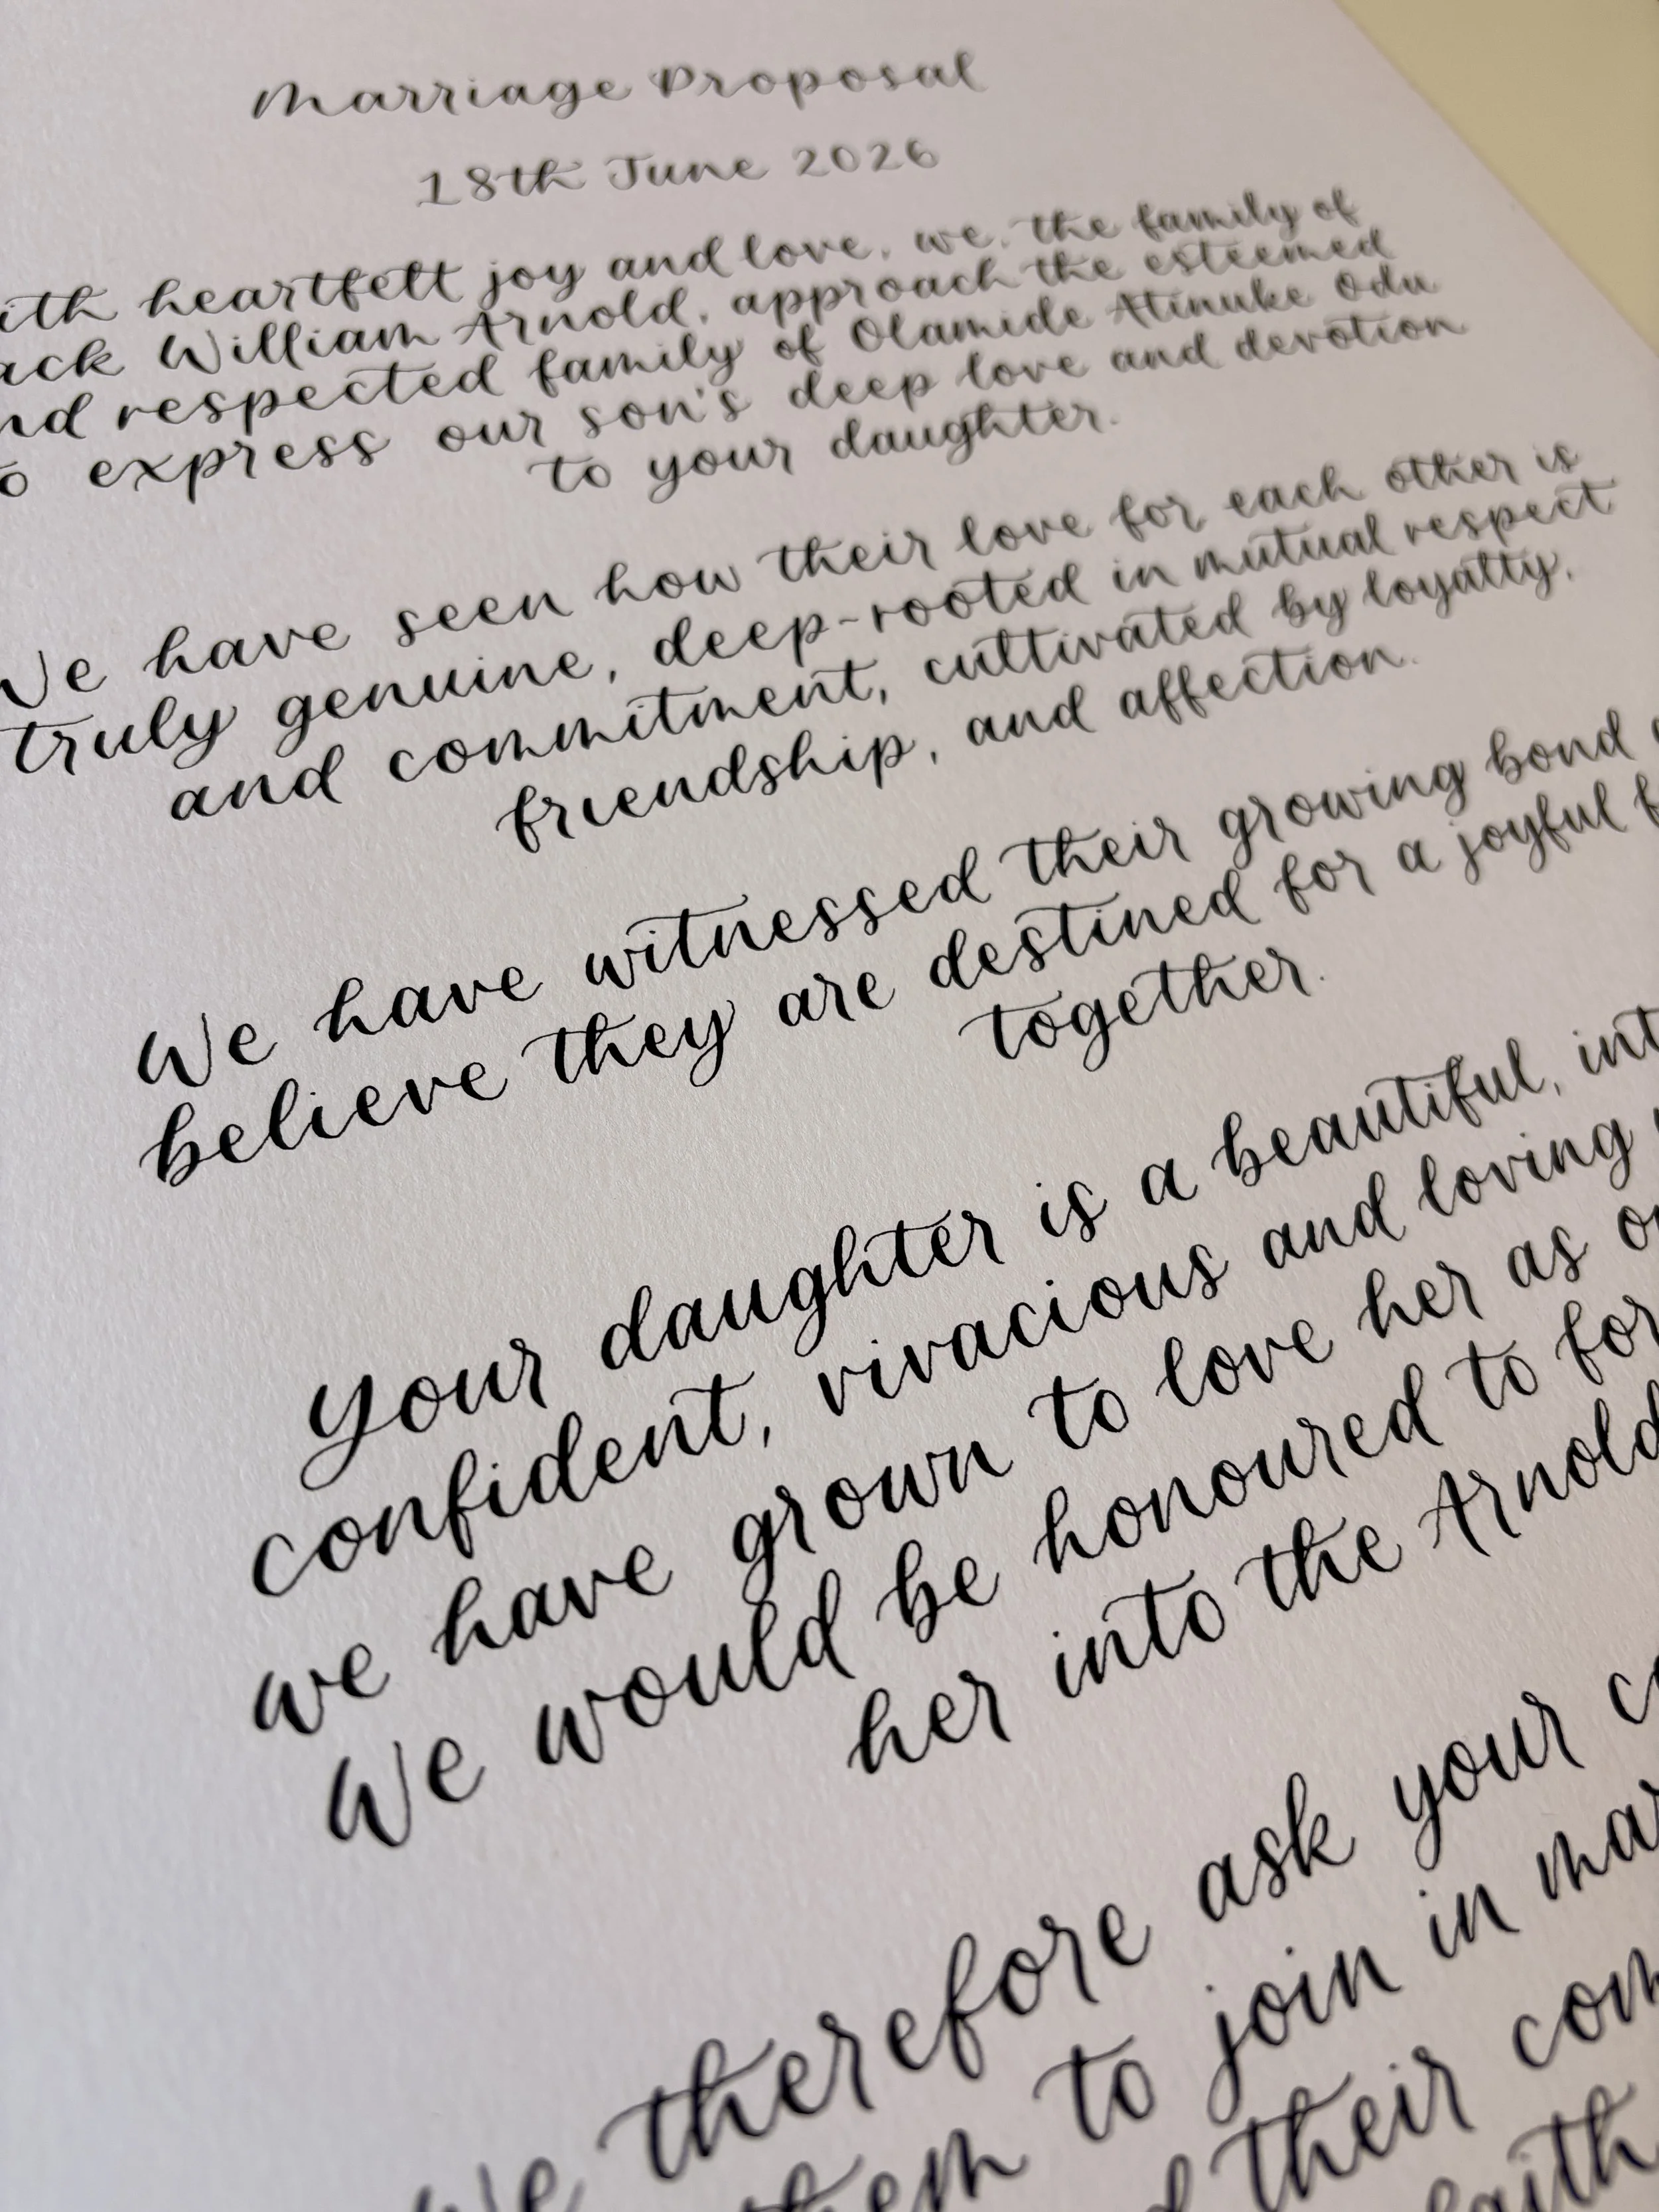 Marriage Proposal
18th June 2026
ith heartfelt joy and love, we, the family of
ack William Arnold, approach the esteemed
nd respected family of Olamide Atinuke Odu
o express our son's deep love and devotion
to your daughter.
We have seen how their love for each other is
truly genuine, deep-rooted in mutual respect
and commitment, cultivated by loyalty,
friendship, and affection.
We have witnessed their growing bond
believe they are destined for a joyful f
together.
Your daughter is a beautiful, int
confident, vivacious and loving
we have grown to love her as o
We would be honoured to for
her into the Arnold
We therefore ask your c
them to join in mar
d their com
faith